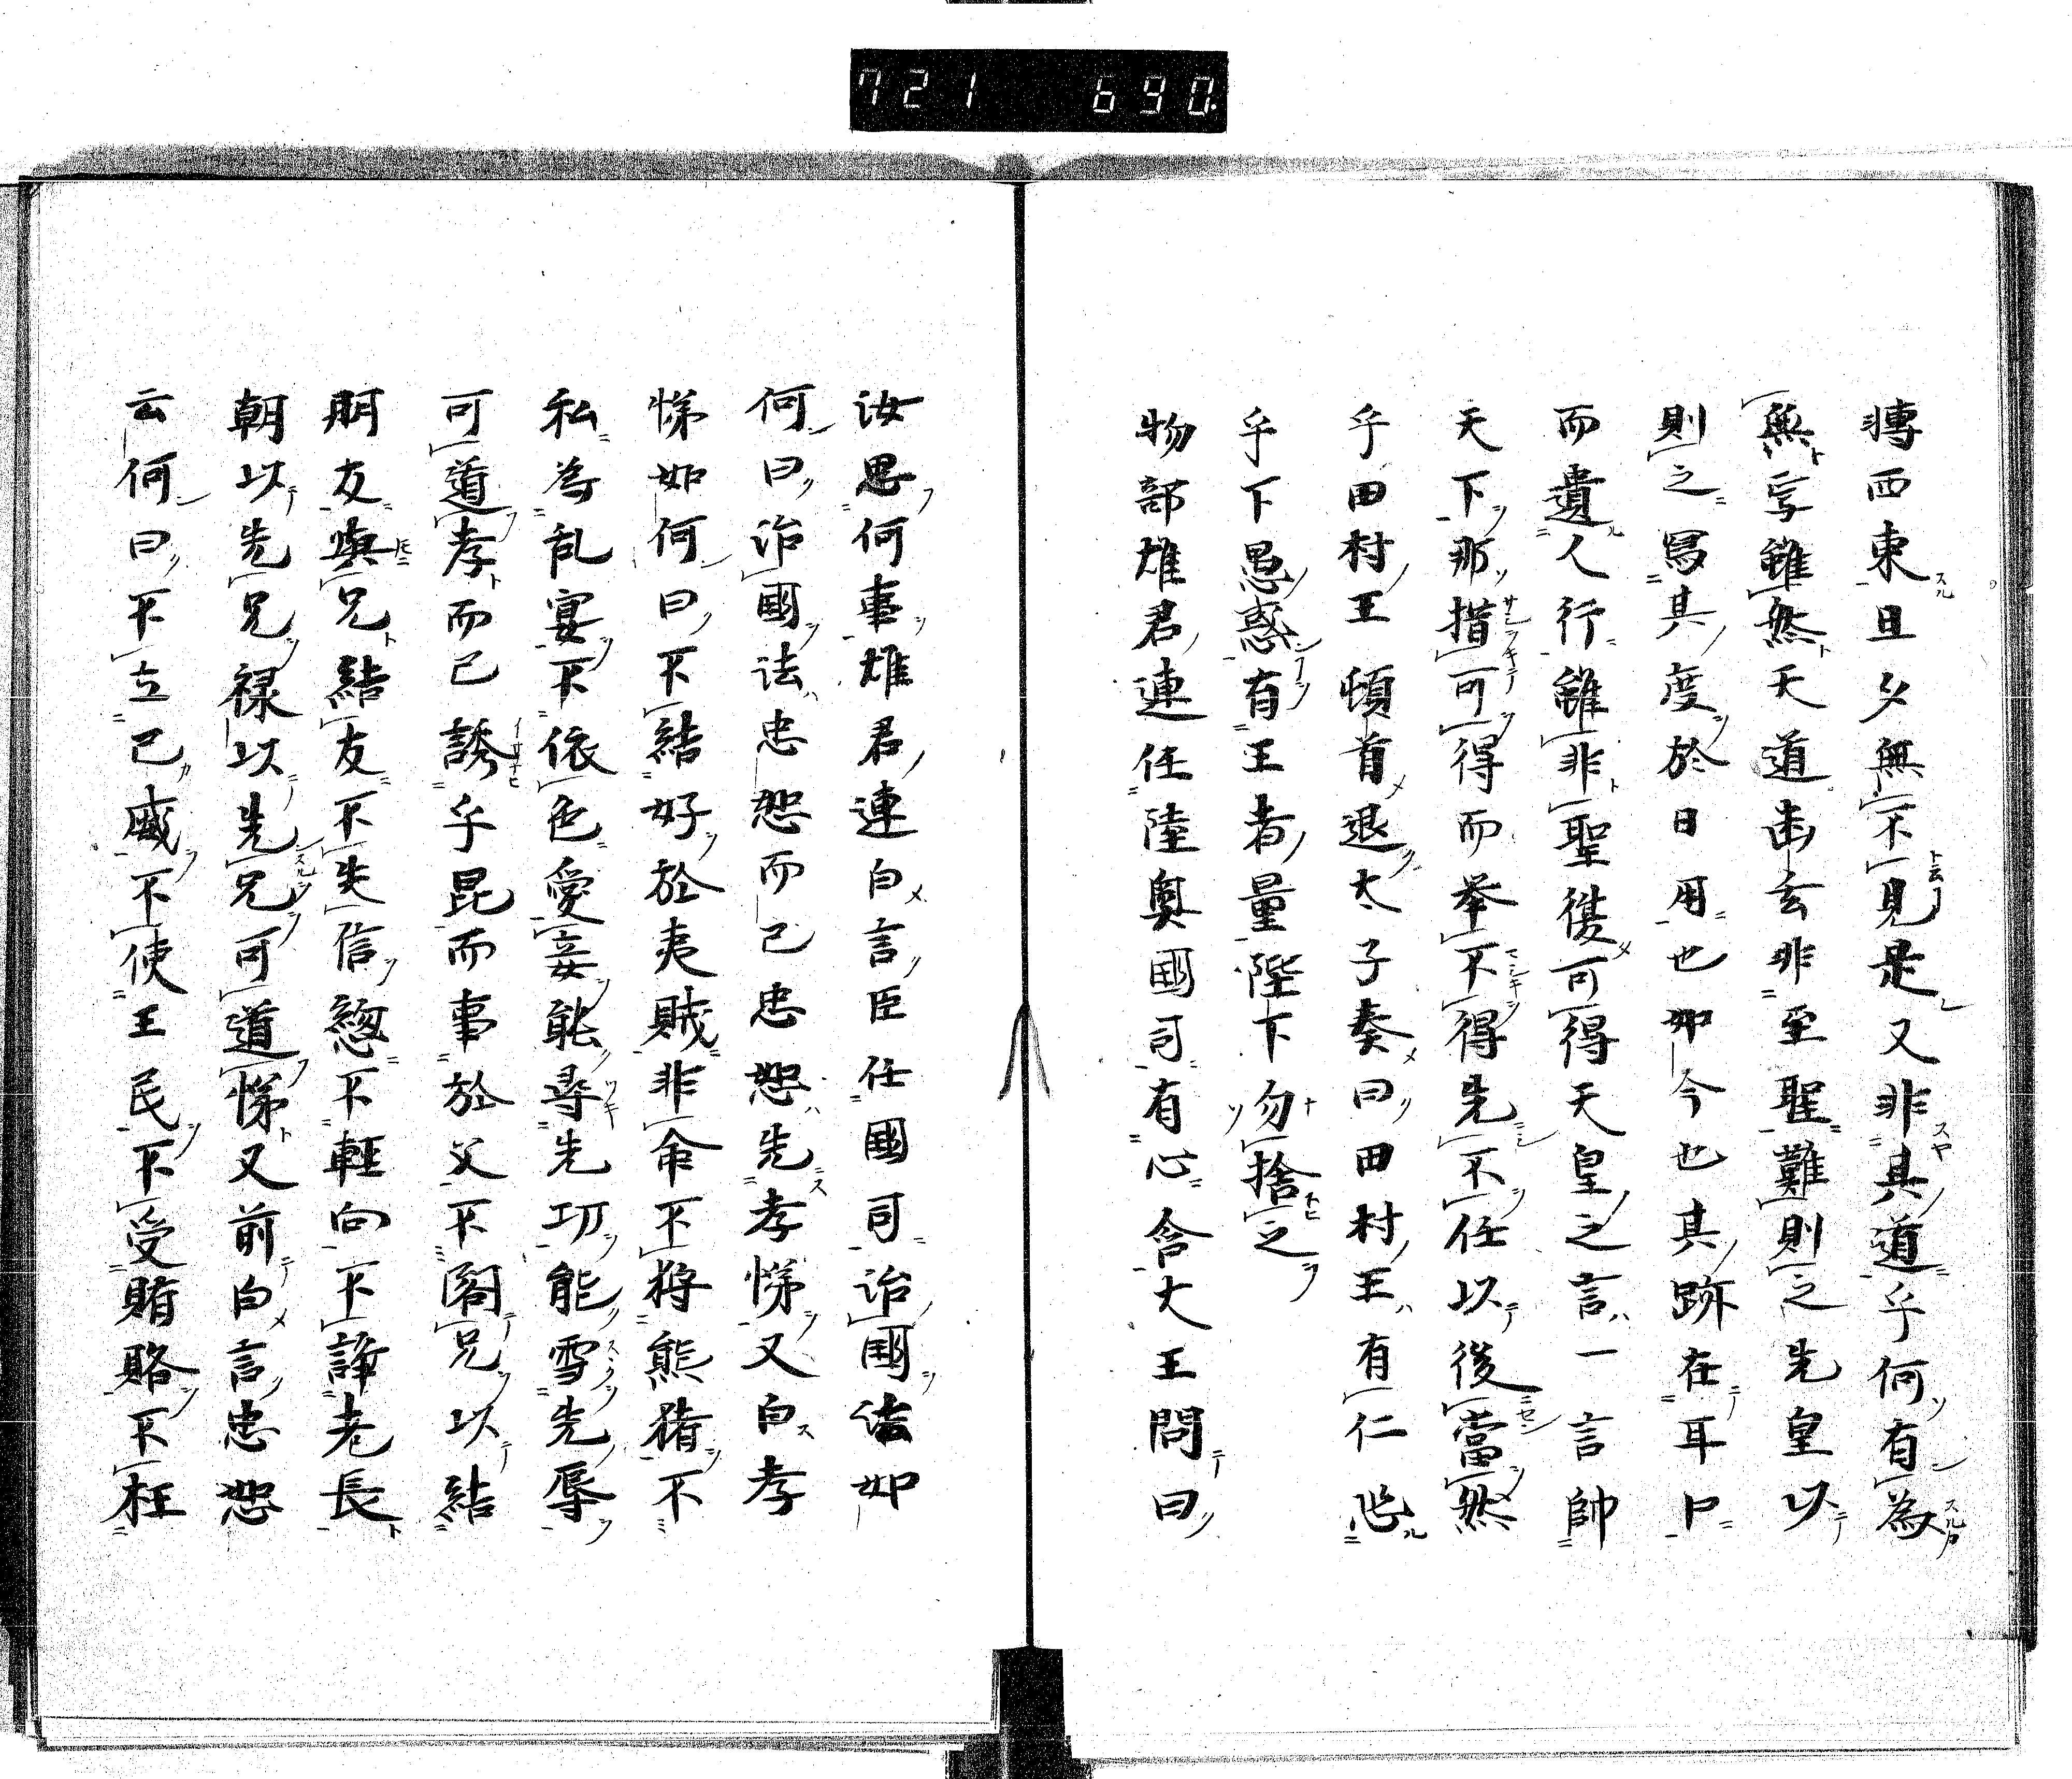 721 690.
轉西東旦夕無不見是又非其道乎何有為
無写雖然天道幽玄非至聖難則之先皇以
則之寫其度於日用也如今也其跡在耳口
而遺人行雖非聖復可得天皇之言一言帥
天下那措可得而举不得先不任以後當然
乎田村王頓首退太子奏曰田村王有仁
乎下愚惑有王者量陛下勿捨之
物部雄君連任陸奥國司有心含大王問曰
汝思何事雄君連白言臣任國司治國法如
何曰治國法忠恕而已忠恕先孝悌又白孝
悌如何曰不結好於夷賊非命不狩熊猪不
私為乱宴不依色愛妾能尋先功能雪先辱
可道孝而已誘乎昆而事於父不閣兄以結
朋友與兄結友不失信緫不輕向不諍老長
朝以先兄禄以先兄可道悌又前白言忠恕
云何曰不立己威不使王民不受賄賂不枉